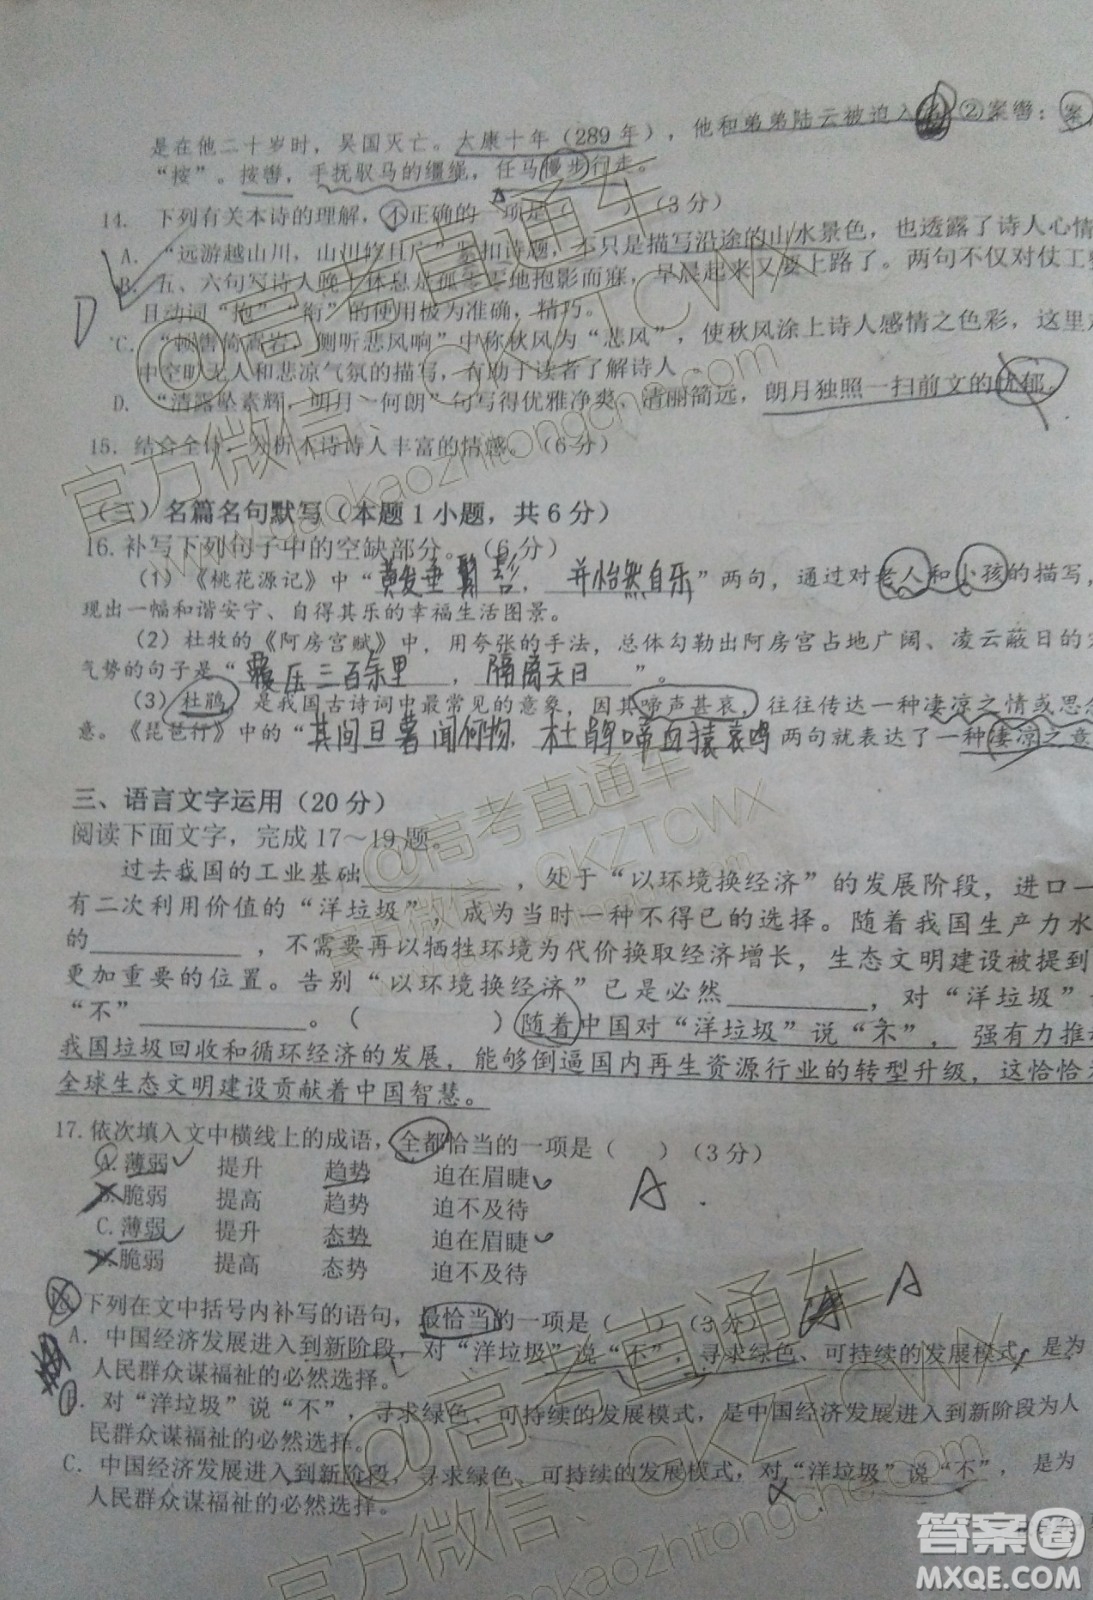 是在他二十岁时，吴国灭亡。太康十年（289年），他和弟弟陆云被迫入 ②案辔：案
“按”。按辔，手抚驭马的缰绳，任马慢步行走。
14. 下列有关本诗的理解，不正确的一项是（ ）（3分）
A
A. “远游越山川，山川修且广”紧扣诗题，不只是描写沿途的山水景色，也透露了诗人心情
B. 五、六句写诗人晚上休息是孤零零地抱影而寐，早晨起来又要上路了。两句不仅对仗工整
且动词“抱”“衔”的使用极为准确，精巧。
D
C. “顿辔倚嵩岩，侧听悲风响”中称秋风为“悲风”，使秋风涂上诗人感情之色彩，这里对
中空旷无人和悲凉气氛的描写，有助于读者了解诗人
D. “清露坠素辉，明月一何朗”句写得优雅净爽、清丽简远，朗月独照一扫前文的忧郁。
15. 结合全诗，分析本诗诗人丰富的情感。（6分）
（三）名篇名句默写（本题1小题，共6分）
16. 补写下列句子中的空缺部分。（6分）
（1）《桃花源记》中“黄发垂髫，并怡然自乐”两句，通过对老人和小孩的描写，
现出一幅和谐安宁、自得其乐的幸福生活图景。
（2）杜牧的《阿房宫赋》中，用夸张的手法，总体勾勒出阿房宫占地广阔、凌云蔽日的宏
气势的句子是“覆压三百余里，隔离天日”。
（3）杜鹃，是我国古诗词中最常见的意象，因其啼声甚哀，往往传达一种凄凉之情或思念
意。《琵琶行》中的“其间旦暮闻何物，杜鹃啼血猿哀鸣 两句就表达了一种凄凉之意
三、语言文字运用（20分）
阅读下面文字，完成17～19题。
过去我国的工业基础________，处于“以环境换经济”的发展阶段，进口一
有二次利用价值的“洋垃圾”，成为当时一种不得已的选择。随着我国生产力水
的________，不需要再以牺牲环境为代价换取经济增长，生态文明建设被提到
更加重要的位置。告别“以环境换经济”已是必然________，对“洋垃圾”
“不”________。（ ）随着中国对“洋垃圾”说“不”，强有力推动
我国垃圾回收和循环经济的发展，能够倒逼国内再生资源行业的转型升级，这恰恰为
全球生态文明建设贡献着中国智慧。
17. 依次填入文中横线上的成语，全都恰当的一项是（ ）（3分）
A. 薄弱 提升 趋势 迫在眉睫
B. 脆弱 提高 趋势 迫不及待
A
C. 薄弱 提升 态势 迫在眉睫
D. 脆弱 提高 态势 迫不及待
A
下列在文中括号内补写的语句，最恰当的一项是（ ）（3分）
A. 中国经济发展进入到新阶段，对“洋垃圾”说“不”，寻求绿色、可持续的发展模式，是为
人民群众谋福祉的必然选择。
B. 对“洋垃圾”说“不”，寻求绿色、可持续的发展模式，是中国经济发展进入到新阶段为人
民群众谋福祉的必然选择。
C. 中国经济发展进入到新阶段，寻求绿色、可持续的发展模式，对“洋垃圾”说“不”，是为
人民群众谋福祉的必然选择。
@高考直通车
官方微信：GKZTCWX
www.gaokaozhitongche.com
@高考直通车
官方微信：GKZTCWX
@高考直通车
官方微信：GKZTCWX
www.gaokaozhitongche.com
答案圈
MXQE.COM